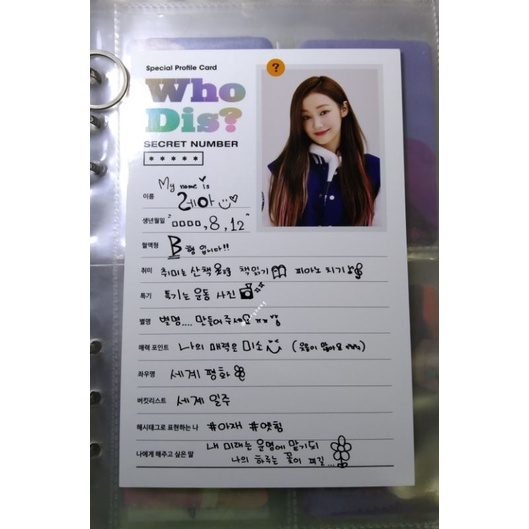 Special Profile Card
Who
Dis?
SECRET NUMBER
*****
?
My name is
이름 레아
생년월일 "□□□□,8,12"
혈액형 B형 입니다!!
취미 취미는 산책 책읽기 피아노 치기
특기 특기는 운동 사진
별명 별명.... 만들어주세요 ㅠㅠ
매력 포인트 나의 매력은 미소 (웃음이 많아요
좌우명 세계 평화
버킷리스트 세계 일주
해시태그로 표현하는 나 #아재 #엣힝
내 미래는 운명에 맡기되
나에게 해주고 싶은 말 나의 하루는 꽃이 피길...